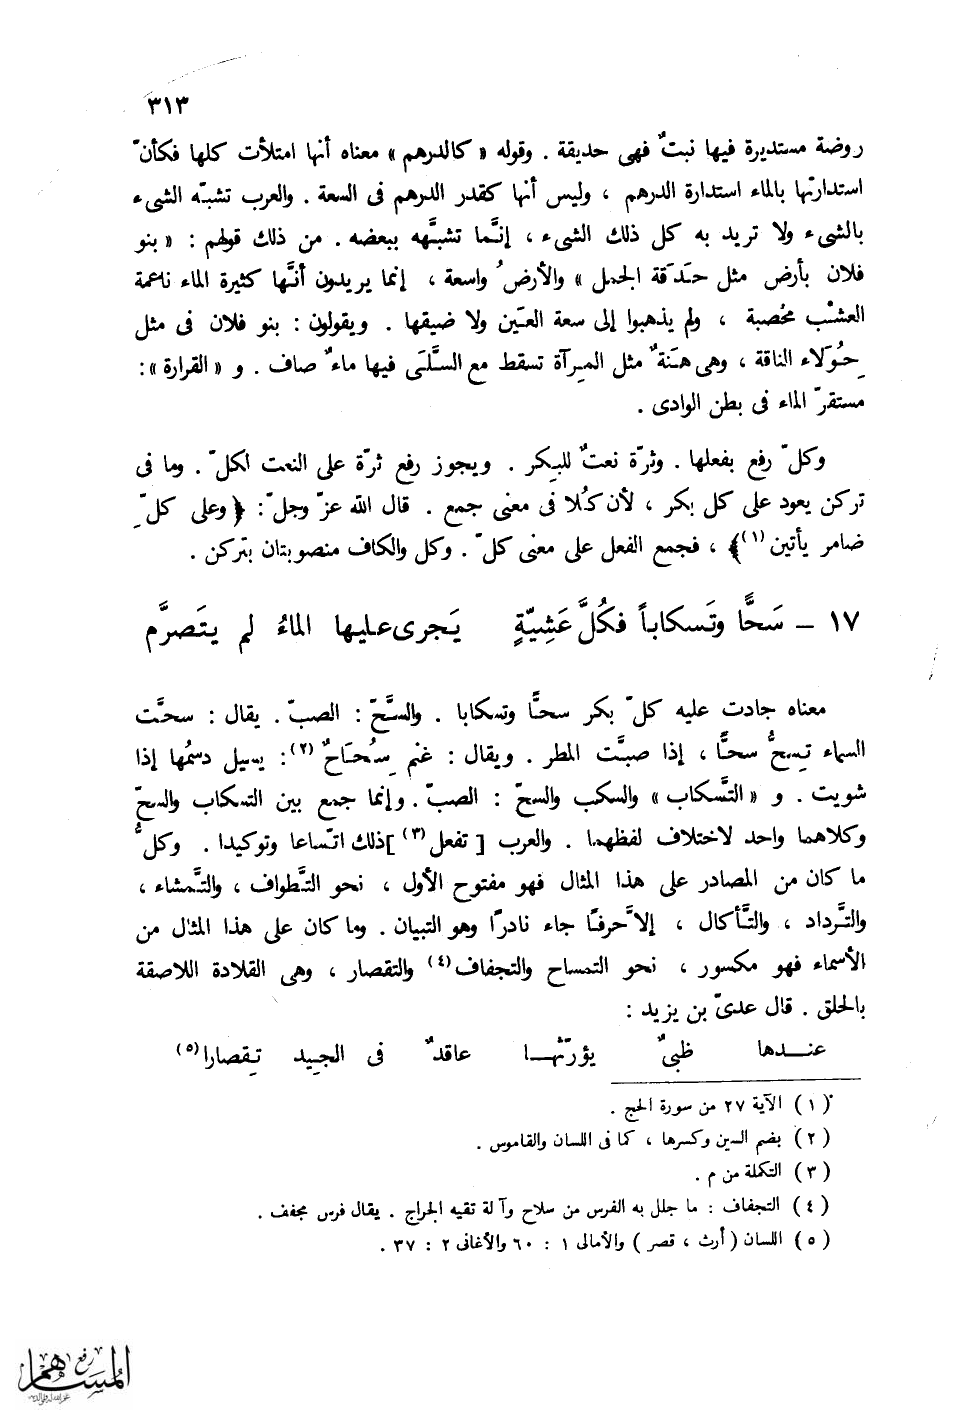 ٣١٣
روضة مستديرة فيها نبتٌ فهى حديقة . وقوله « كالدرهم » معناه أنها امتلأت كلها فكأنّ
استدارتها بالماء استدارة الدرهم ، وليس أنها كقدر الدرهم فى السعة . والعرب تشبّه الشىء
بالشىء ولا تريد به كل ذلك الشىء ، إنَّما تشبَّهه ببعضه . من ذلك قولهم : « بنو
فلان بأرض مثل حَدَقة الجمل » والأرضُ واسعة ، إنما يريدون أنَّها كثيرة الماء ناعمة
العشْب مخصبة ، ولم يذهبوا إلى سعة العَين ولا ضيقها . ويقولون : بنو فلان فى مثل
حِوَلاء الناقة ، وهى هَنَةٌ مثل المِرآة تسقط مع السَّلَى فيها ماءٌ صاف . و « القرارة » :
مستقرّ الماء فى بطن الوادى .
وكلّ رفع بفعلها . وثرّة نعتٌ للبِكر . ويجوز رفع ثرّة على النعت لكلّ . وما فى
تركن يعود على كل بكر ، لأن كُلا فى معنى جمع . قال الله عزّ وجلّ : ﴿ وعلى كلّ
ضامر يأتين (١) ﴾ ، فجمع الفعل على معنى كلّ . وكل والكاف منصوبتان بتركن .
١٧ – سَحًّا وتَسكاباً فكُلَّ عَشِيّةٍ يَجرى عليها الماءُ لم يتَصرَّم
معناه جادت عليه كلّ بكر سحًّا وتسكابا . والسَّحّ : الصبّ . يقال : سحَّت
السماء تسِحُّ سحًّا ، إذا صبَّت المطر . ويقال : غنم سِحَاحٌ (٢) : يسيل دسمُها إذا
شويت . و « التَّسكاب » والسكب والسحّ : الصبّ . وإنما جمع بين التسكاب والسحّ
وكلاهما واحد لاختلاف لفظهما . والعرب [ تفعل (٣) ] ذلك اتّساعا وتوكيدا . وكلُّ
ما كان من المصادر على هذا المثال فهو مفتوح الأول ، نحو التَّطواف ، والتَّمشاء ،
والتَّرداد ، والتَّأكال ، إلاَّ حرفًا جاء نادرًا وهو التبيان . وما كان على هذا المثال من
الأسماء فهو مكسور ، نحو التمساح والتجفاف (٤) والتقصار ، وهى القلادة اللاصقة
بالحلق . قال عدىّ بن يزيد :
عنــدها ظبىٌ يؤرّثهــا عاقدٌ فى الجِيد تِقصارا (٥)
( ١ ) الآية ٢٧ من سورة الحج .
( ٢ ) بضم السين وكسرها ، كما فى اللسان والقاموس .
( ٣ ) التكملة من م .
( ٤ ) التجفاف : ما جلل به الفرس من سلاح وآلة تقيه الجراح . يقال فرس مجفف .
( ٥ ) اللسان ( أرث ، قصر ) والأمالى ١ : ٦٠ والأغانى ٢ : ٣٧ .